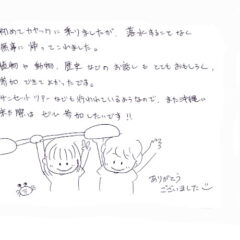 初めてカヤックに乗りましたが、落水することなく
無事に帰ってこれました。
植物や動物、歴史などのお話しもとてもおもしろく、
参加できてよかったです。
サンセットツアーなども行われているようなので、また沖縄に
来た際はぜひ参加したいです!!
ありがとう
ございました